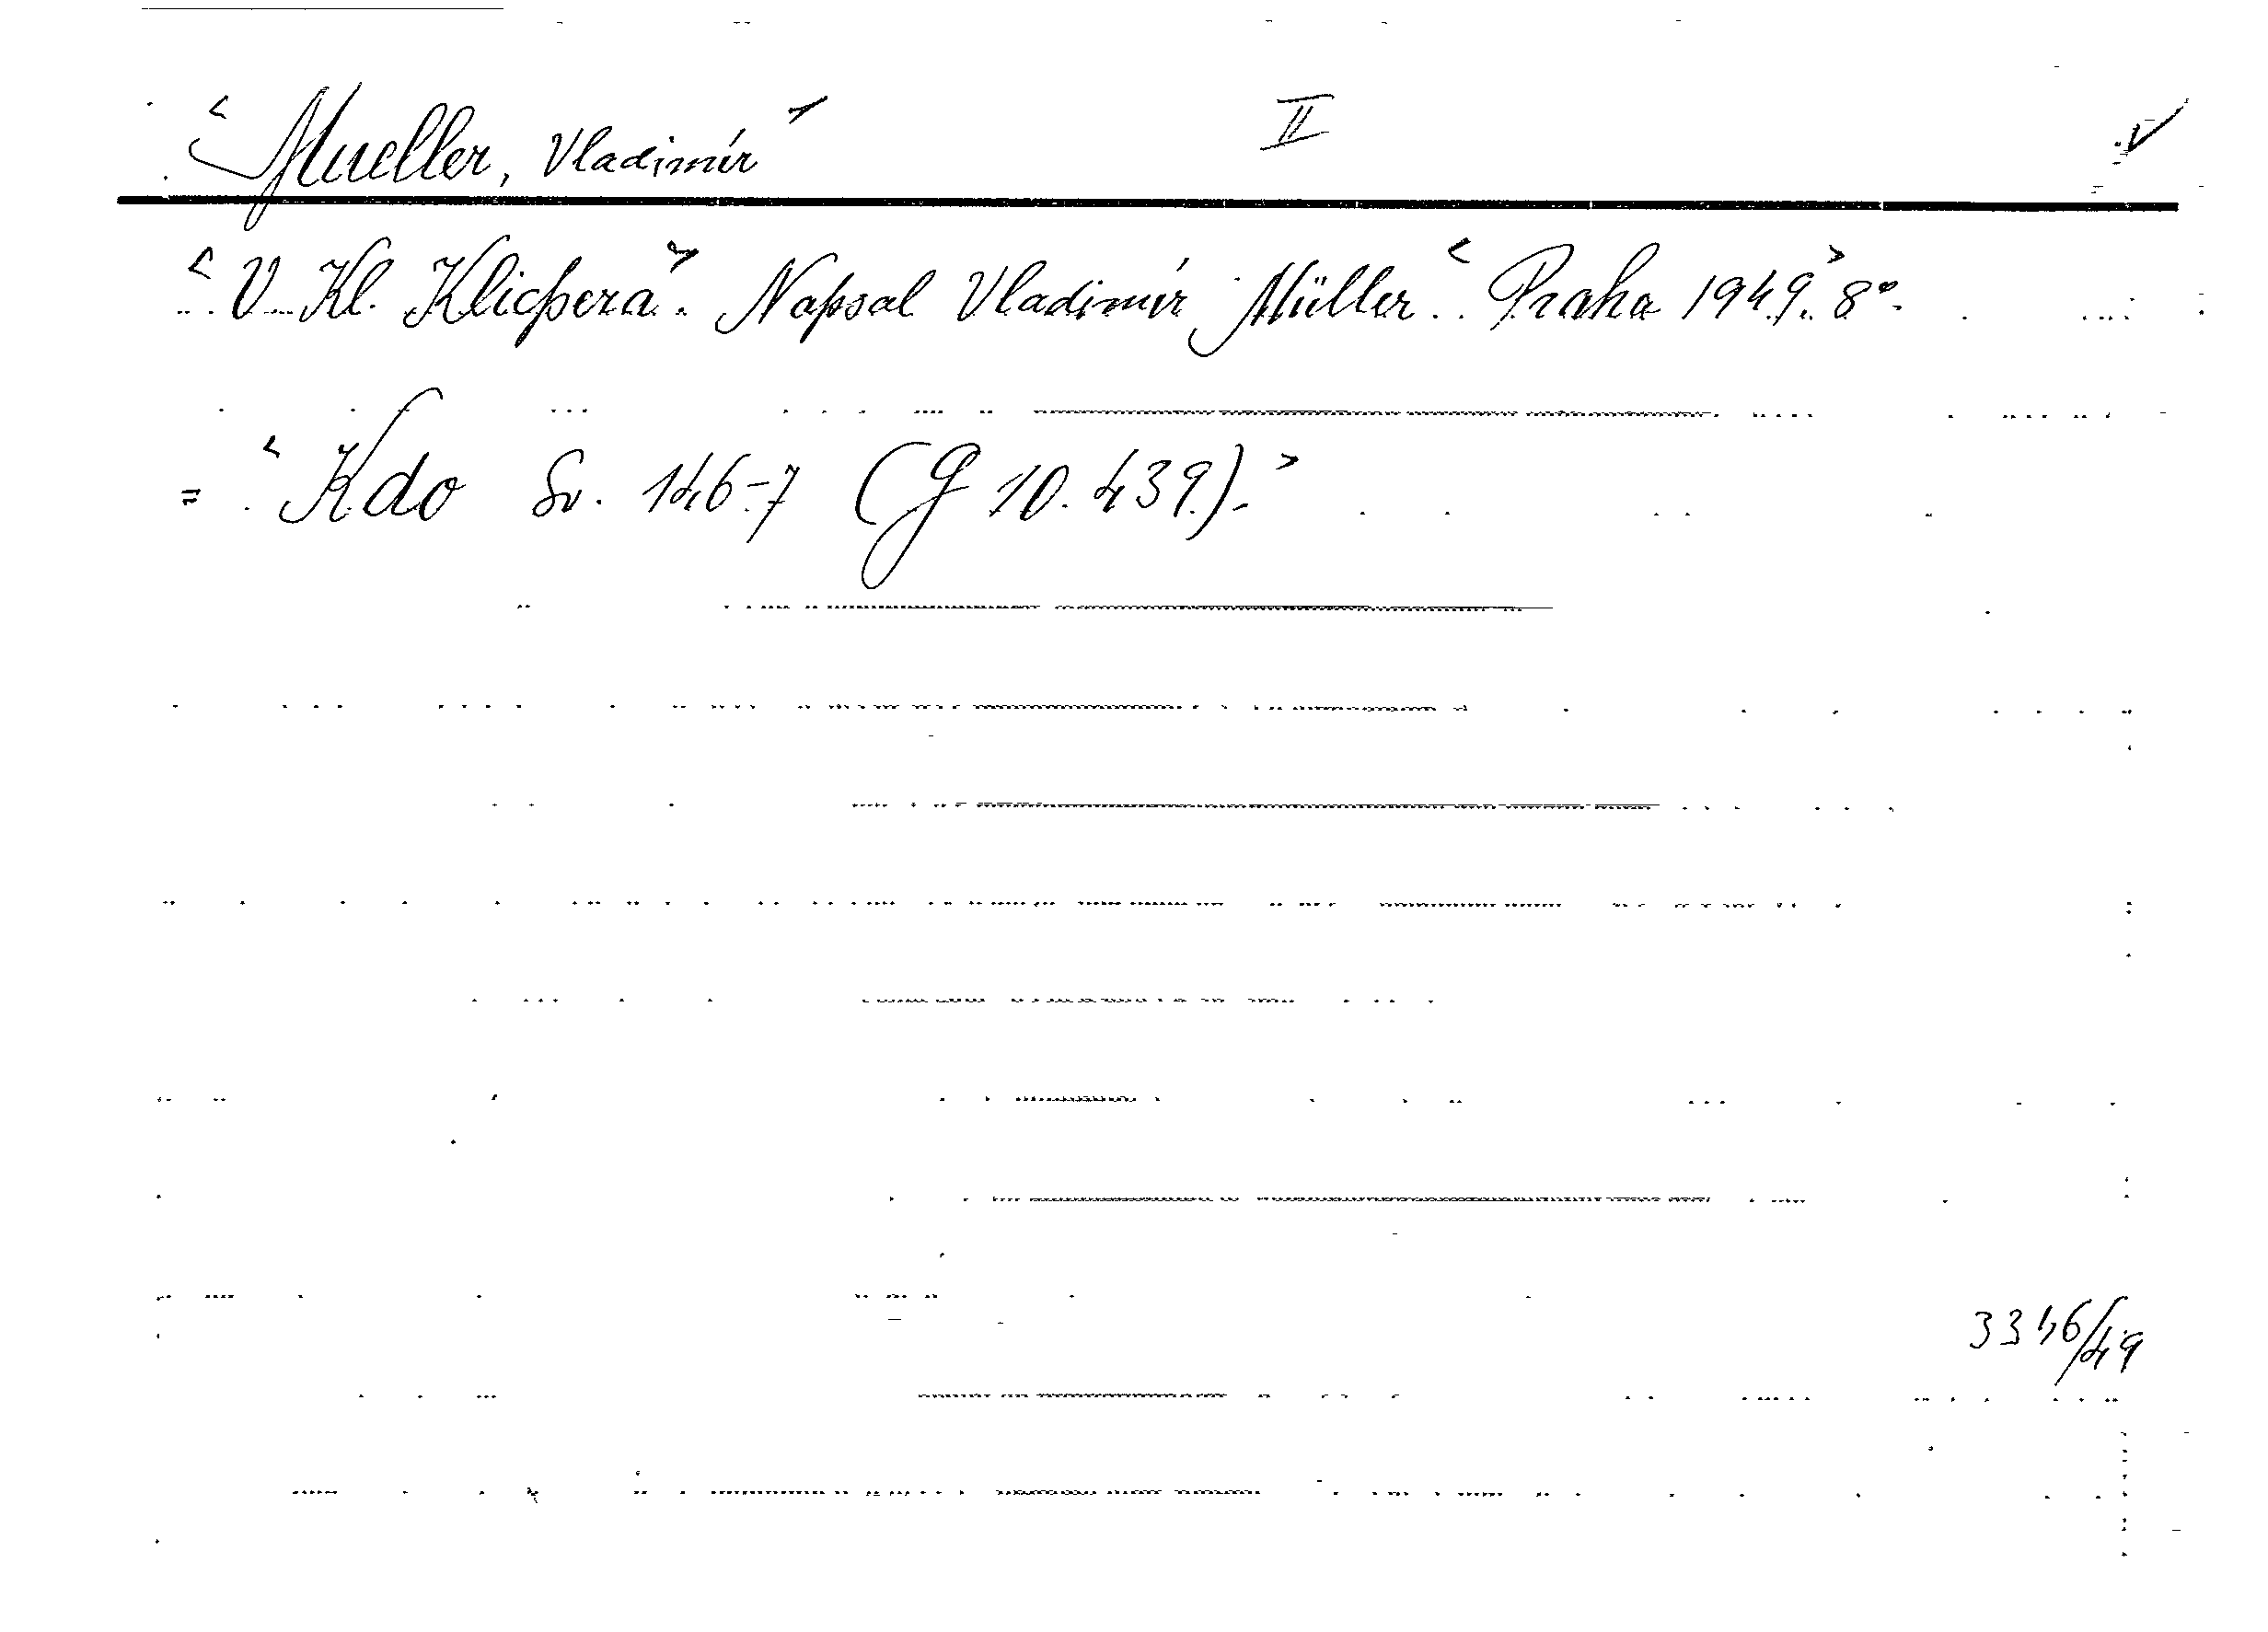 <Mueller, Vladimír> II V
<V. Kl. Klicpera.> Napsal Vladimír Müller. <Praha 1949.> 8°.
= <Kdo Sv. 146-7 (G 10.439).>
3346/49